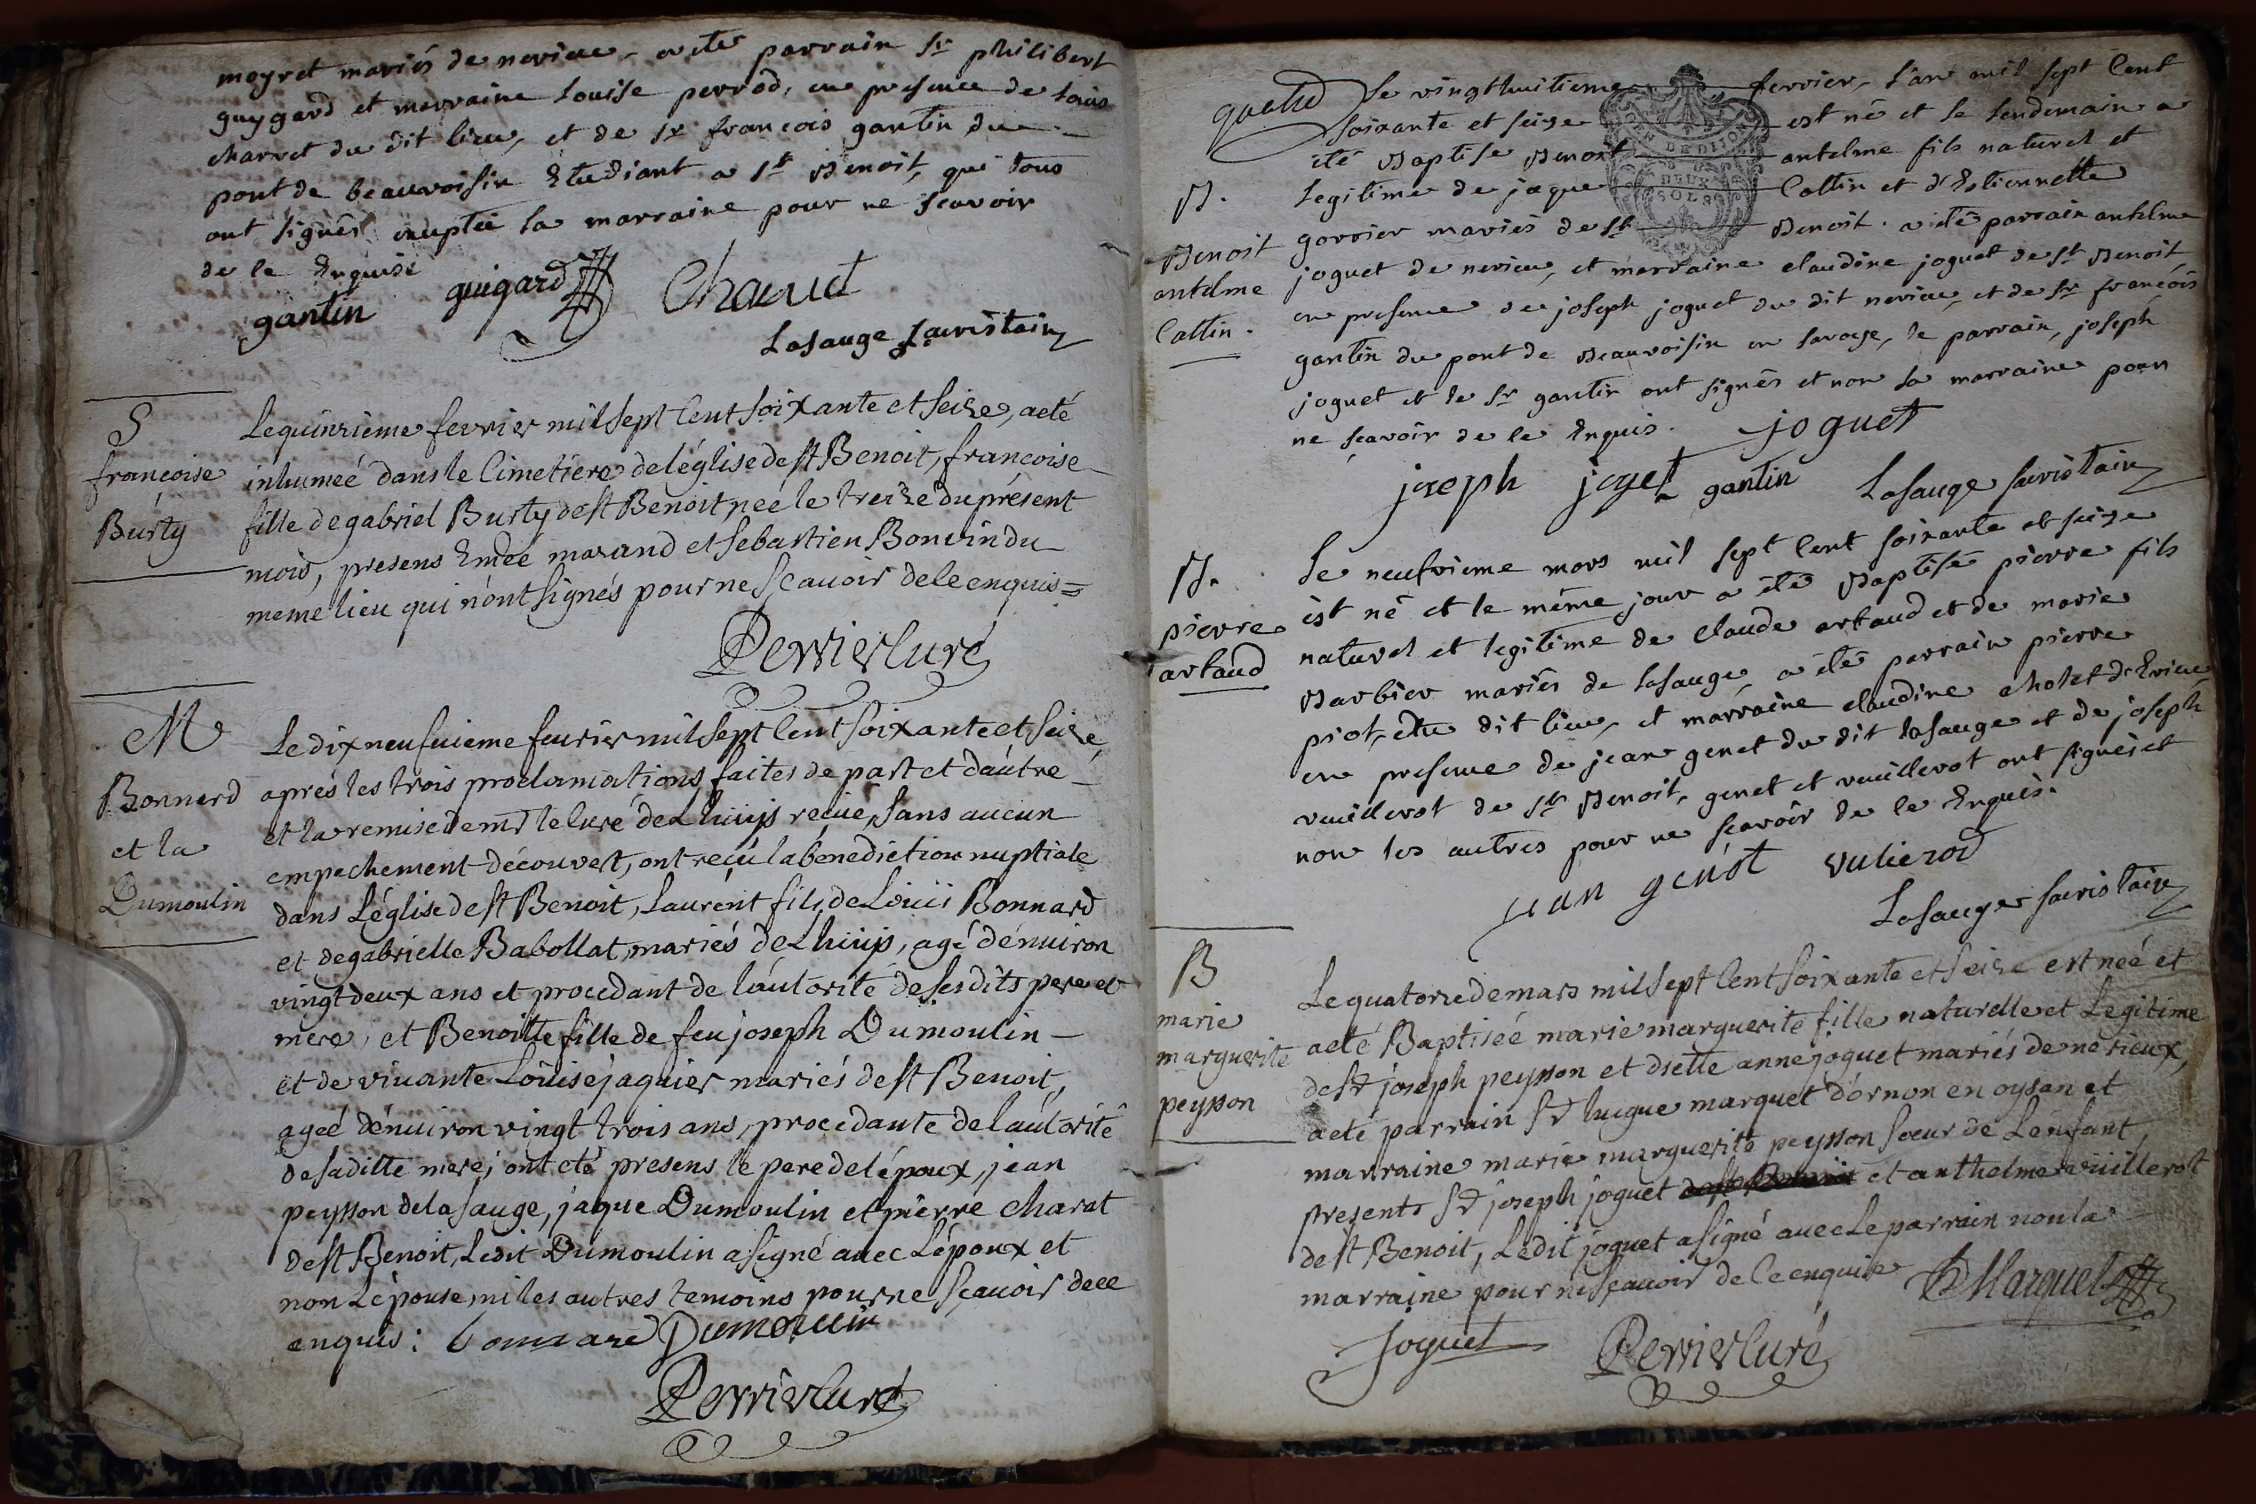 moyret mariés de nerieu, a eté parrain Sr philibert
guygard et marraine Louise perrod, en presence de Louis
charvet du dit lieu, et de Sr françois gantin du
pont de beauvoisin Etudiant a St Benoit, qui tous
ont signés exceptée la marraine pour ne scavoir
de ce Enquise
gantin guigard Charvet
Lasauge Sacristain
S
françoise
Burty
Le quinzieme fevrier mil sept Cent soixante et seize, a eté
inhumeé dans le Cimetiere de l'église de St Benoit, françoise
fille de gabriel Burty de St Benoit, neé le treize du présent
mois, presens Emoé marand et Sebastien Bonvin du
meme lieu qui n'ont signés pour ne sçavoir de ce enquis =
Perrier Curé
M
Bonnard
et la
Dumoulin
Le dix neuf uieme feurier mil sept Cent soixante et seize,
aprés les trois proclamations faites de part et d'autre
et la remise de mr le Curé de Lhuijs reçue, sans aucun
empechement découvert, ont reçu la bénediction nuptiale
dans L'église de St Benoit, Laurent fils de Louis Bonnard
et de gabrielle Babollat, mariés de Lhuijs, agé d'enuiron
vingt deux ans et procedant de l'autorité de ses dits pere et
mere, et Benoitte fille de feu joseph Dumoulin
et de viuante Louise jaquier mariés de St Benoit,
ageé d'enuiron vingt trois ans, procedante de l'autorité
de sa ditte mere; ont eté presens le pere de l'époux, jean
peysson de la sauge, jaque Dumoulin et pierre charat
de St Benoit, Ledit Dumoulin a signé avec L'époux et
non L'épouse, ni les autres temoins pour ne sçavoir de ce
enquis: bonnard Dumoulin
Perrier Curé
B.
Benoit
antelme
Cattin.
Le vingthuitieme fevrier, L'an mil sept Cent
soixante et seize est né et le lendemain a
été Baptisé Benoit antelme fils naturel et
Legitime de jaque Cattin et d'Estiennette
gorrier mariés de St Benoit. a eté parrain antelme
joguet de nerieu, et marraine claudine joguet de St Benoit,
en presence de joseph joguet du dit nerieu, et de Sr françois
gantin du pont de Beauvoisin en savoye, le parrain, joseph
joguet et le Sr gantin ont signés et non la marraine pour
ne sçavoir de ce Enquis. joguet
joseph joget gantin Lasauge sacristain
B.
pierre
artaud
Le neufvieme mars mil sept Cent soixante et seize
est né et le même jour a eté Baptisé pierre fils
naturel et legitime de Claude artaud et de marie
Barbier mariés de Lasauge, a eté parrain pierre
piot, du dit lieu, et marraine claudine cholet d'Evieu,
en presence de jean genet du dit Lasauge et de joseph
vuillerot de St Benoit, genet et vuillerot ont signés et
non les autres pour ne sçavoir de ce Enquis.
jean genet vulierod
Lasauge sacristain
B
marie
marguerite
peysson
Le quatorze de mars mil sept Cent soixante et seize est neé et
a eté Baptiseé marie marguerite fille naturelle et Legitime
de Sr joseph peysson et dlette anne joguet mariés de nerieux,
a eté parrain Sr hugue marquet d'ornon en oysan et
marraine marie marguerite peysson soeur de L'enfant,
presents Sr joseph joguet et anthelme vuillerot
de St Benoit, Ledit joguet a signé avec Le parrain non la
marraine pour ne sçavoir de ce enquise Marquet
Joguet Perrier Curé